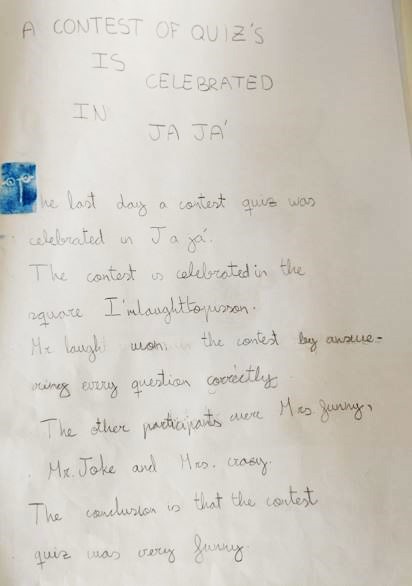 A CONTEST OF QUIZ'S
IS
CELEBRATED
IN
JA JA'
The last day a contest quiz was
celebrated in Ja já.
The contest is celebrated in the
square I'mlaughttopisson.
Mr laught won in the contest by answe-
ring every question correctly.
The other participants were Mrs funny,
Mr. Joke and Mrs. crazy.
The conclusion is that the contest
quiz was very funny.